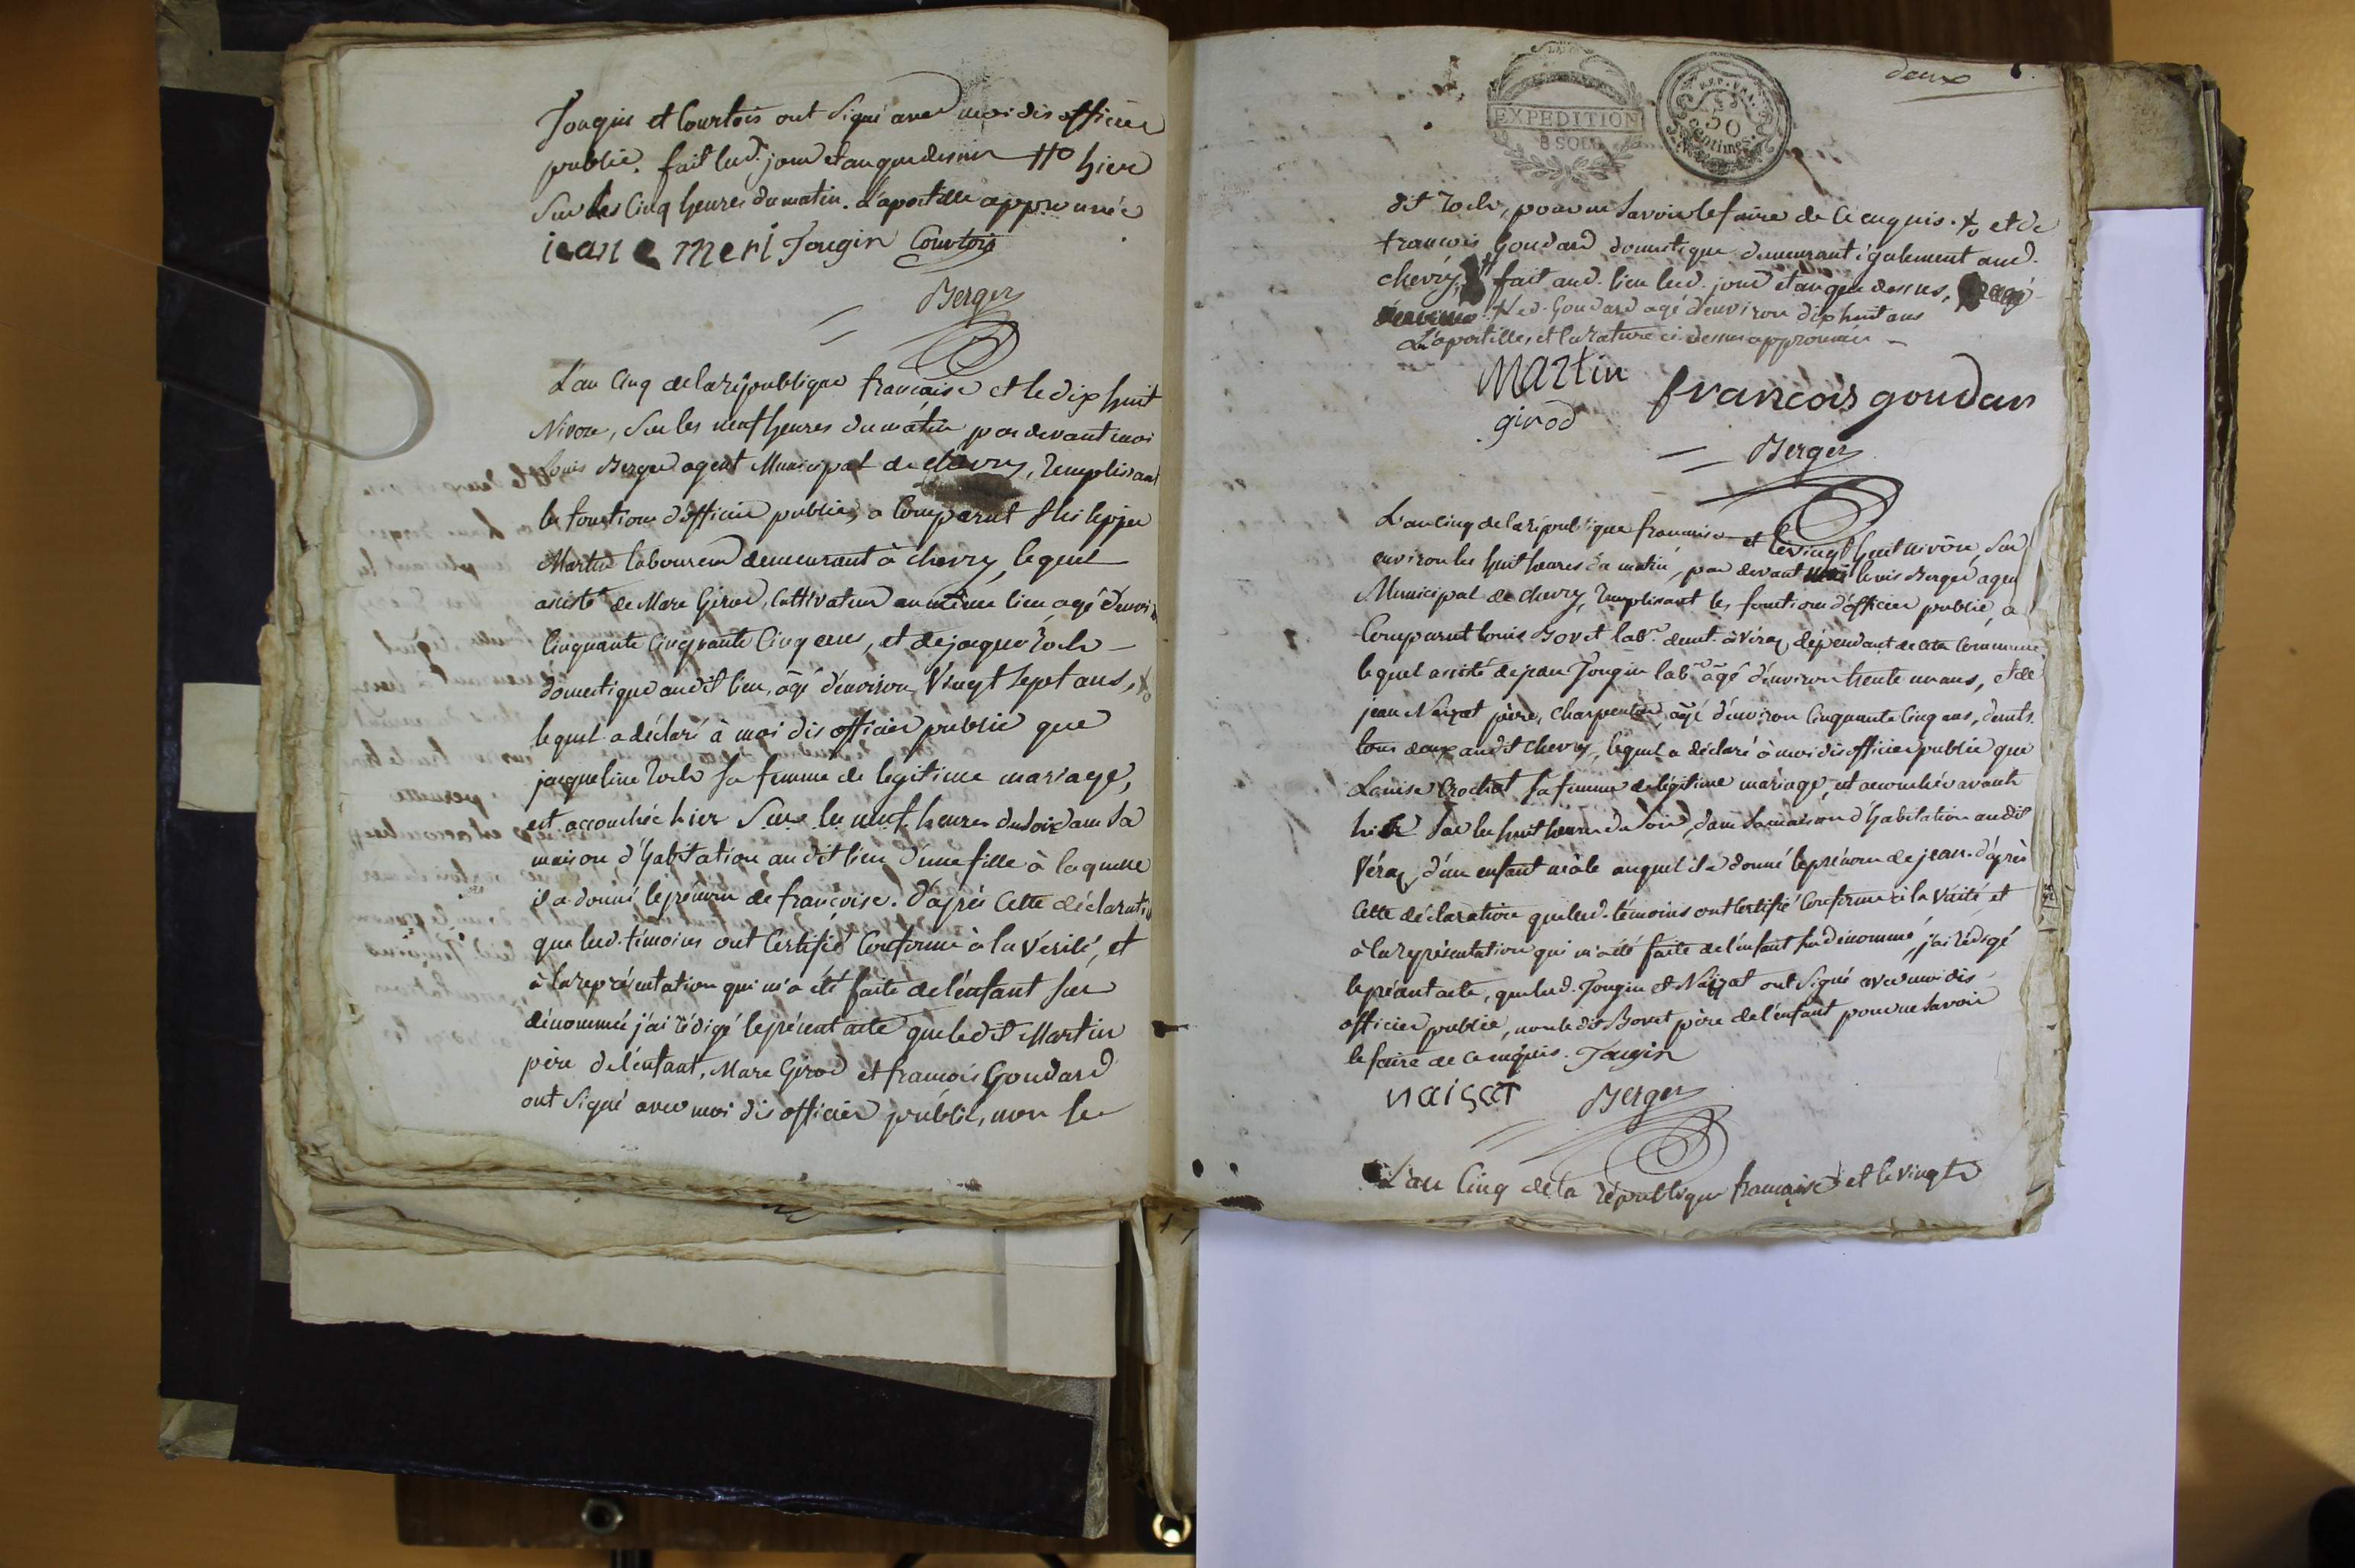 Jougin et Courtois ont signé avec moi dis officier
public. fait lud. jour et an que dessus # hier
sur les cinq heures du matin. L'apostille approuvée
jean e meri Jougin Courtois
Berger
L'an cinq de la république francaise et le dix huit
Nivose, sur les neuf heures du matin par devant moi
Louis Berger agent Municipal de chevry, remplissant
les fonctions d'officier public, a comparut Philippe
Martin laboureur demeurant à chevry, lequel
assisté de Marc Girod, cultivateur au même lieu agé d'envi
cinquante cinquante cinq ans, et de jacques roch
domestique audit lieu, âgé d'environ vingt sept ans,
lequel a déclaré à moi dis officier public que
jacqueline roch sa femme de legitime mariage,
est accouchée hier sur les neuf heures du soir dans sa
maison d'habitation audit lieu d'une fille à laquelle
il a donné le prénom de francoise. d'après cette déclarati
que lesd. témoins ont certifié conforme à la vérité, et
à la représentation qui m'a été faite de l'enfant sus
dénommée j'ai rédigé le présent acte que ledit Martin
père de l'enfant, Marc Girod et francois Goudard
ont signé avec moi dis officier public, non le
deux
EXPEDITION
8 SOLS
50
Centimes
dit roch, pour ne savoir le faire de ce enquis. et de
francois Goudard domestique demeurant également aud.
chevry, fait aud. lieu lesd. jour et an que dessus,
led. Goudard agé d'environ dix huit ans
L'apostille, et la rature ci dessus approuvées
Martin françois goudar
girod
Berger
L'an cinq de la république francaise et le vingt huit nivôse, sur
environ les huit heures du matin, par devant moi louis Berger agent
Municipal de chevry, remplissant les fonctions d'officier public, a
comparut louis Bovet labr. demt. à véraz dépendant de cette commune
lequel assisté de jean Jougin labr. âgé d'environ trente un ans, et de
jean Naizat père, charpentier, âgé d'environ cinquante cinq ans, demts.
tous deux audit chevry, lequel a déclaré à moi dis officier public que
Louise Crochat sa femme de légitime mariage, est accouchée avant
hier sur les huit heures du soir, dans sa maison d'habitation audit
véraz, d'un enfant mâle auquel il a donné le prénom de jean. d'après
cette déclaration que lesd. témoins ont certifié conforme à la vérité et
à la représentation qui m'a été faite de l'enfant sus dénommé, j'ai rédigé
le présent acte, que lesd. Jougin et Naizat ont signé avec moi dis
officier public, non ledit Bovet père de l'enfant pour ne savoir
le faire de ce enquis. Jougin
naisat Berger
L'an cinq de la république francaise et le vingt